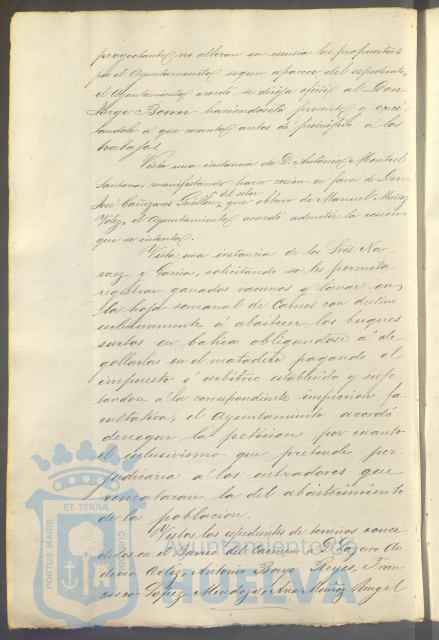 proyectante, no alteran en esencia las propuestas
por el Ayuntamiento segun aparece del espediente,
el Ayuntamiento acordó se dirija oficio al Don
Jorge Bower haciendoselo presente y exci-
tandole á que cuanto antes dé principio á los
trabajos
Vista una instancia de D. Antonio Montiel
Santana manifestando hacer cesion en favor de Don
José Cañizares Guillen, del solar
que obtuvo de Manuel Muñoz
Velez, el Ayuntamiento acordó admitir la cesion
que se intenta.
Vista una instancia de los Sres. Nar-
vaez y Garcia, solicitando se les permita
registrar ganados vacunos y lanar en
la hoja semanal de Carnes con destino
esclusivamente á abastecer los buques
surtos en bahia obligandose á de-
gollarlas en el matadero pagando el
impuesto ó arbitrio establecido y suje-
tandose á la correspondiente inspeccion fa-
cultativa, el Ayuntamiento acordó
denegar la peticion por cuanto
el esclusivismo que pretende per-
judicaria á los entradores que
remataran la del abastecimiento
de la poblacion.
Vistos los espedientes de terrenos conce-
didos en el Barrio del Carmen á D. Lazaro An-
Ortiz, Antonio Bayo Reyes, Fran-
cisco Lopez Mendoza, Ana Muñoz Rangel
PORTUS MARIS ET TERRAE CUSTODIA
Ayuntamiento de
HUELVA